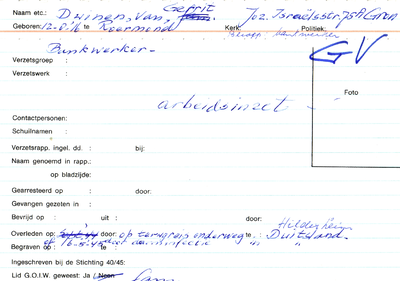 Naam etc.: Duinen, van, Gerrit Joz. Israëlsstr. 75A Gron
Geboren: 12-8-'16 te Roermond Kerk: Politiek:
Bankwerker -
GV
Verzetsgroep :
Verzetswerk :
arbeidsinzet -
Foto
Contactpersonen:
Schuilnaam :
Verzetsrapp. ingel. dd. : bij:
Naam genoemd in rapp.:
op bladzijde:
Gearresteerd op : door:
Gevangen gezeten in :
Bevrijd op : uit : door:
Hildesheim
Overleden op: door: op terugreis onderweg te : Duitsland
Begraven op : 16-5-45 te : " "
Ingeschreven bij de Stichting 40/45:
Lid G.O.I.W. geweest: Ja / Neen